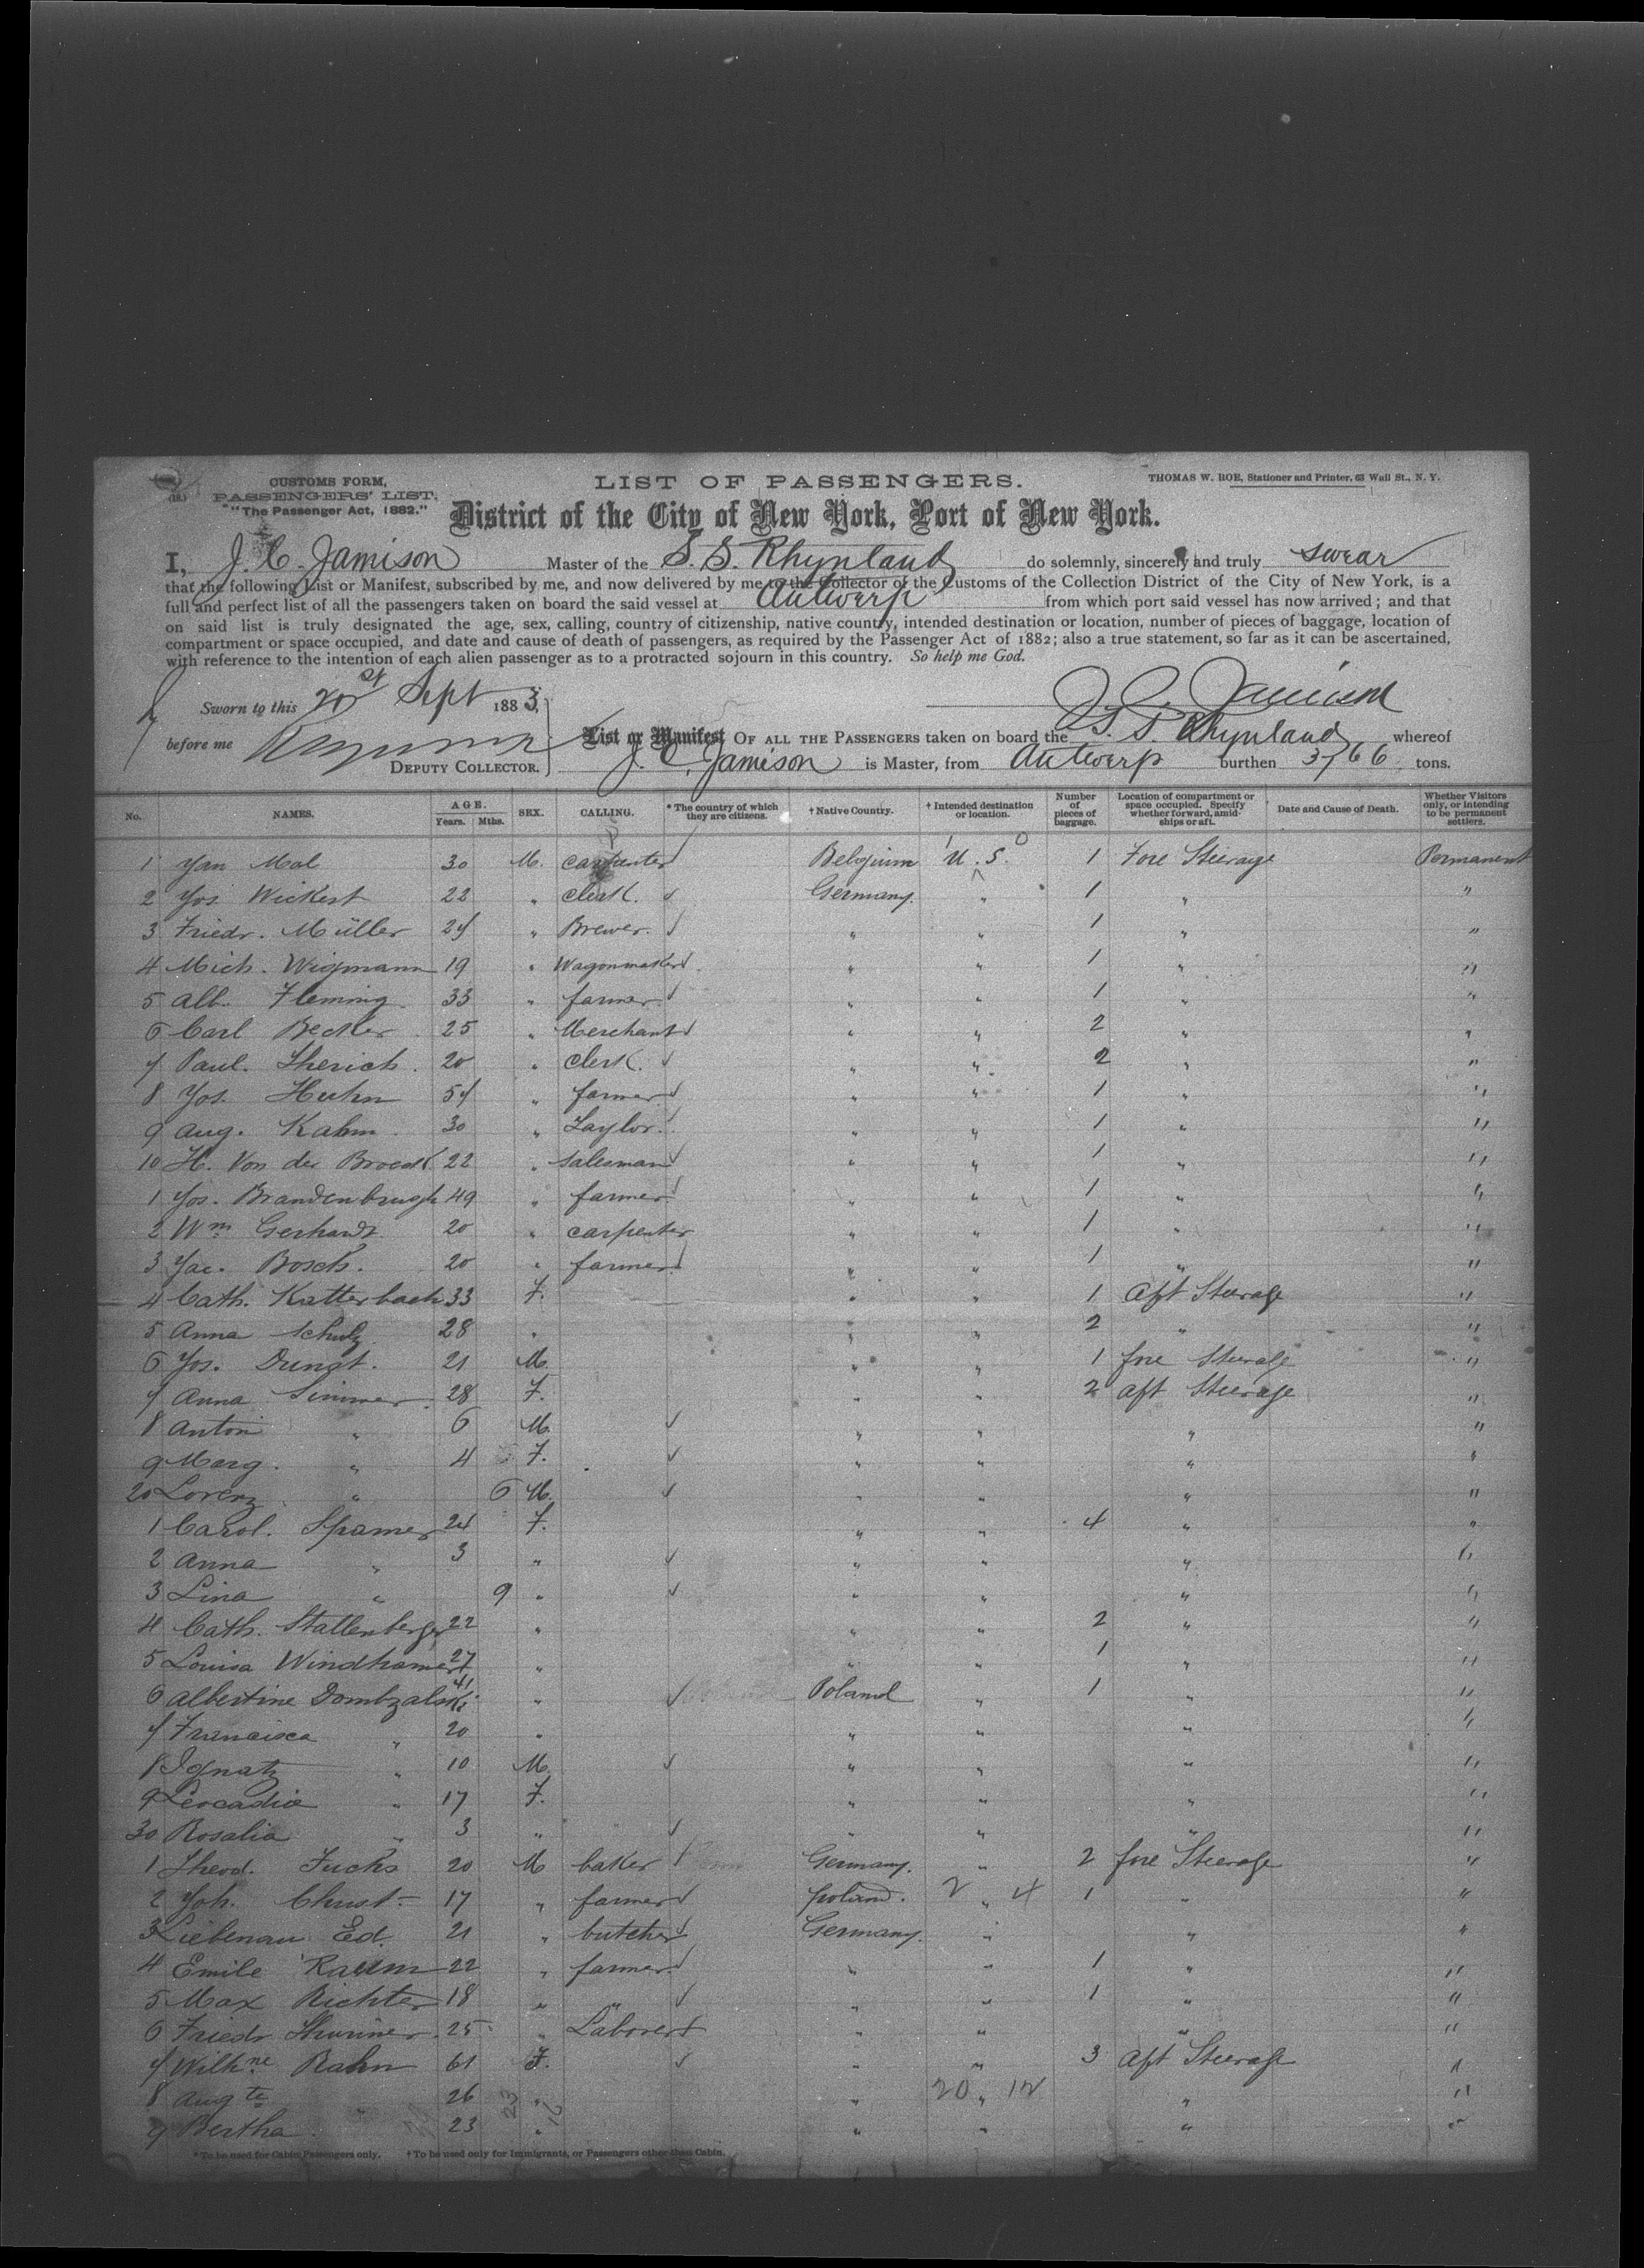 CUSTOMS FORM,
PASSENGERS' LIST.
"The Passenger Act, 1882."
LIST OF PASSENGERS.
THOMAS W. ROE, Stationer and Printer, 63 Wall St., N. Y.
District of the City of New York, Port of New York.
I, J. C. Jamison Master of the S. S. Rhynland do solemnly, sincerely and truly swear
that the following List or Manifest, subscribed by me, and now delivered by me to the Collector of the Customs of the Collection District of the City of New York, is a
full and perfect list of all the passengers taken on board the said vessel at Antwerp from which port said vessel has now arrived; and that
on said list is truly designated the age, sex, calling, country of citizenship, native country, intended destination or location, number of pieces of baggage, location of
compartment or space occupied, and date and cause of death of passengers, as required by the Passenger Act of 1882; also a true statement, so far as it can be ascertained,
with reference to the intention of each alien passenger as to a protracted sojourn in this country. So help me God.
Sworn to this Sept 1883,
J. C. Jamison
before me
DEPUTY COLLECTOR.
List or Manifest OF ALL THE PASSENGERS taken on board the S. S. Rhynland whereof
J. C. Jamison is Master, from Antwerp burthen 3766 tons.
No. NAMES. AGE. Years. Mths. SEX. CALLING. * The country of which they are citizens. † Native Country. † Intended destination or location. Number of pieces of baggage. Location of compartment or space occupied. Specify whether forward, amidships or aft. Date and Cause of Death. Whether Visitors only, or intending to be permanent settlers.
1 Yan Mol 30 M. carpenter Belgium U. S. 1 Fore Steerage Permanent
2 Yos Wickert 22 " clerk. Germany. " 1 " "
3 Friedr. Müller 24 " Brewer. " " 1 " "
4 Mich. Wigmann 19 " Wagonmaker " " 1 " "
5 Alb. Fleming 33 " farmer " " 1 " "
6 Carl Becker 25 " Merchant " " 2 " "
7 Paul. Sherich. 20 " Clerk. " " 2 " "
8 Yos. Huhn 54 " farmer " " 1 " "
9 Aug. Kahm 30 " Taylor. " " 1 " "
10 H. Von der Broeck 22 " Salesman " " 1 " "
1 Yos. Brandenbrugh 49 " farmer " " 1 " "
2 Wm Gerhardt 20 " carpenter " " 1 " "
3 Yac. Bosch. 20 " farmer " " 1 " "
4 Cath. Katterbach 33 F. " " 1 Aft Steerage "
5 Anna Schulz 28 " " " 2 " "
6 Yos. Dungt. 21 M. " " 1 fore Steerage "
7 Anna Simmer 28 F. " " 2 aft Steerage "
8 Anton " 6 M. " " " "
9 Marg. " 4 F. " " " "
20 Lorenz " 6 M. " " " "
1 Carol. Spamer 24 F. " " 4 " "
2 Anna " 3 " " " " "
3 Lina " 9 " " " " "
4 Cath. Stallenberger 22 " " " 2 " "
5 Louisa Windhamer 27 " " " 1 " "
6 Albertine Dombzalski 41 " Poland " 1 " "
7 Francisca " 20 " " " " "
8 Ignatz " 10 M. " " " "
9 Leocadia " 17 F. " " " "
30 Rosalia " 3 " " " " "
1 Theod. Fuchs 20 M baker Germany. " 2 fore Steerage "
2 Joh. Chust 17 " farmer poland. 2 " 4 1 " "
3 Liebenau Ed. 21 " butcher Germany. " " "
4 Emile Raum 22 " farmer " " 1 " "
5 Max Richter 18 " " " " 1 " "
6 Friedr 25 " Laborer " " " "
7 Wilhne Rahn 61 F. " " 3 Aft Steerage "
8 Augte 26 " " 20 " 12 " "
9 Bertha 23 " " " " "
* To be used for Cabin Passengers only. † To be used only for Immigrants, or Passengers other than Cabin.